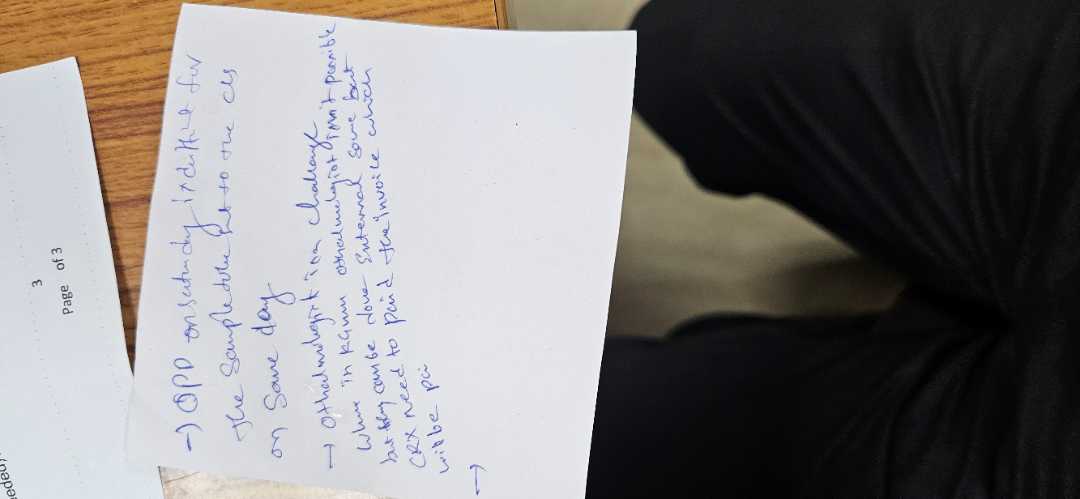 → OPD on saturday is difficult for
the sample to be put to the CLS
on Same day
→ othalmologist is a challenge
where in KGMU othalmologist isn't possible
but they can be done External Source but
CRX need to paid the invoice which
will be pai
→
3
Page of 3
eeded).